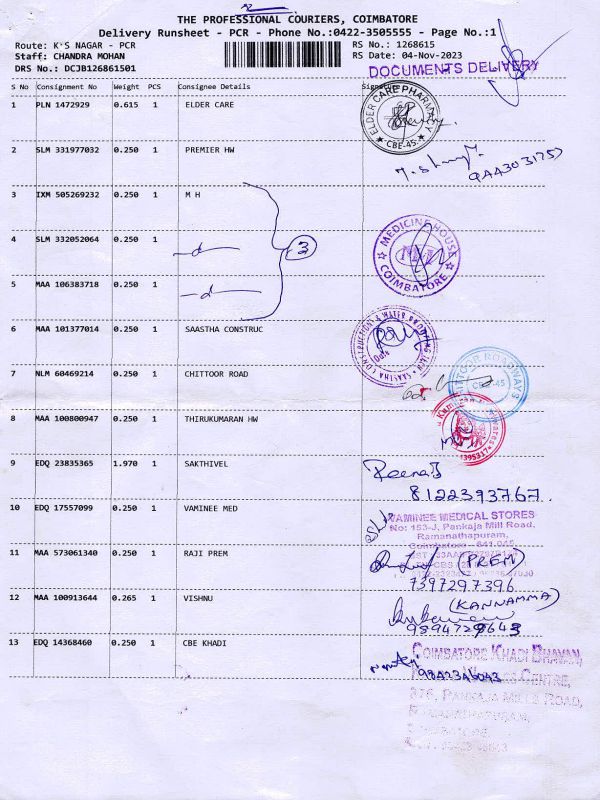 THE PROFESSIONAL COURIERS, COIMBATORE
Delivery Runsheet - PCR - Phone No.:0422-3505555 - Page No.:1
Route: K'S NAGAR - PCR
RS No.: 1268615
Staff: CHANDRA MOHAN
RS Date: 04-Nov-2023
DRS No.: DCJB126861501
DOCUMENTS DELIVERY
S No Consignment No Weight PCS Consignee Details Signature
1 PLN 1472929 0.615 1 ELDER CARE
ELDER CARE PHARMACY
CBE-45.
2 SLM 331977032 0.250 1 PREMIER HW
3 IXM 505269232 0.250 1 M H
4 SLM 332052064 0.250 1
3
MEDICINE HOUSE
COIMBATORE
5 MAA 106383718 0.250 1
6 MAA 101377014 0.250 1 SAASTHA CONSTRUC
7 NLM 60469214 0.250 1 CHITTOOR ROAD
ROADWAYS
CBE-45
8 MAA 100800947 0.250 1 THIRUKUMARAN HW
9 EDQ 23835365 1.970 1 SAKTHIVEL
8122393767.
10 EDQ 17557099 0.250 1 VAMINEE MED
VAMINEE MEDICAL STORES
No: 153-J, Pankaja Mill Road,
Ramanathapuram,
Coimbatore - 641 045
11 MAA 573061340 0.250 1 RAJI PREM
(PREM)
7397297396
12 MAA 100913644 0.265 1 VISHNU
(KANNAMMA)
13 EDQ 14368460 0.250 1 CBE KHADI
COIMBATORE KHADI BHAVAN,
CENTRE,
376, PANKAJA MILLS ROAD,
RAMANATHAPURAM,